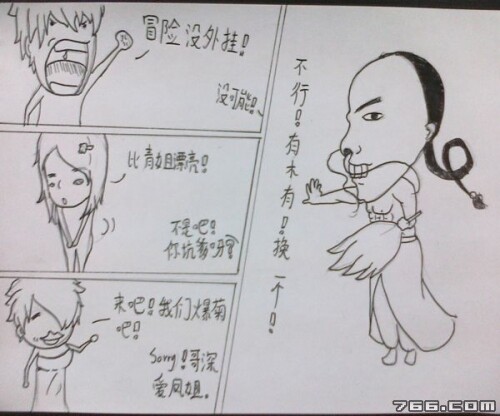 冒险没外挂!
没可能!
比青姐漂亮!
不是吧!
你坑爹呀
来吧!我们爆菊
吧!
Sorry!哥深
爱凤姐.
不行!有木有!换一个!
766.com